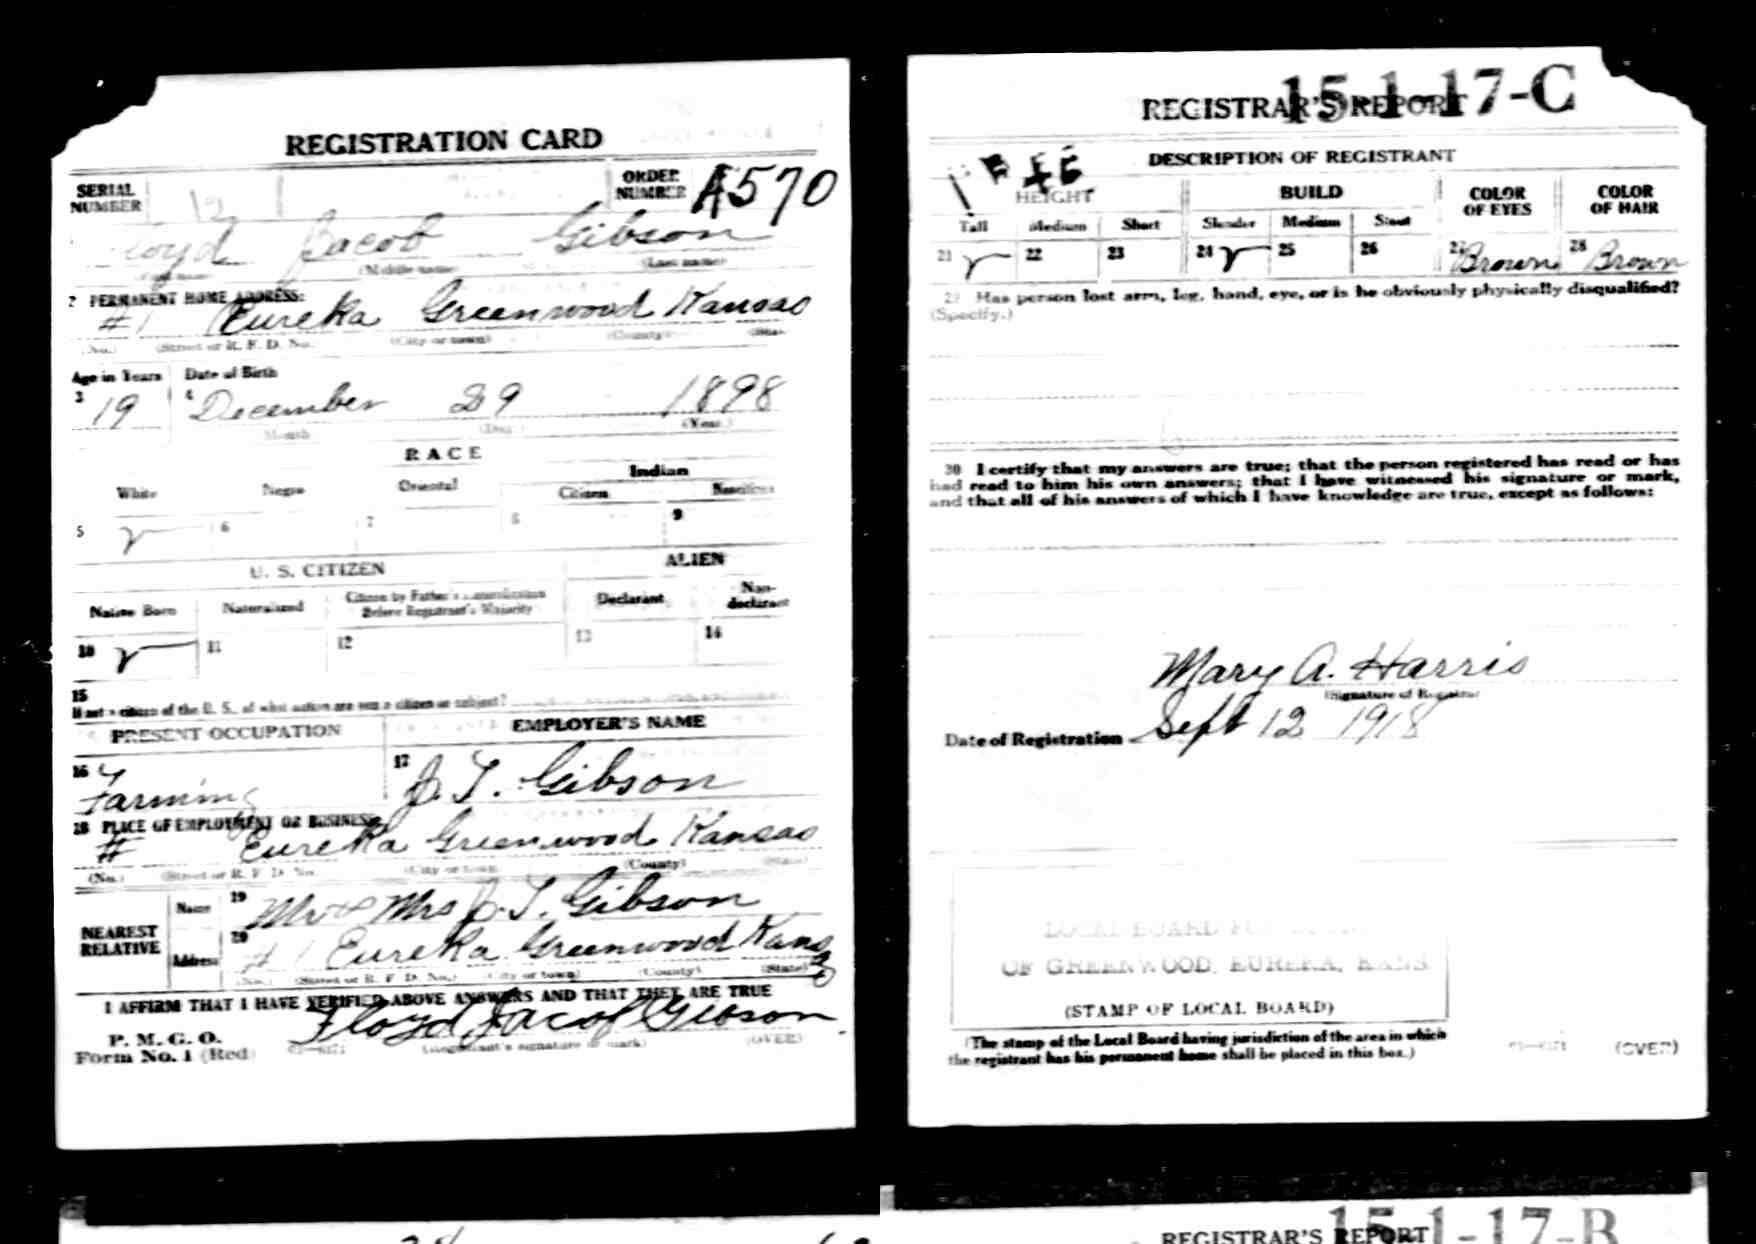 REGISTRATION CARD
SERIAL NUMBER 12
ORDER NUMBER A570
Floyd Jacob Gibson
(Middle name) (Last name)
2 PERMANENT HOME ADDRESS:
#1 Eureka Greenwood Kansas
(No.) (Street or R. F. D. No.) (City or town) (County) (State)
Age in Years Date of Birth
3 19 4 December 29 1898
Month (Day) (Year)
RACE
White Negro Oriental Indian
Citizen Noncitizen
5 6 7 8 9
U. S. CITIZEN ALIEN
Native Born Naturalized Citizen by Father's Naturalization Before Registrant's Majority Declarant Non-declarant
10 11 12 13 14
15
If not a citizen of the U. S., of what nation are you a citizen or subject?
PRESENT OCCUPATION EMPLOYER'S NAME
16 Farming 17 J. T. Gibson
18 PLACE OF EMPLOYMENT OR BUSINESS:
# Eureka Greenwood Kansas
(No.) (Street or R. F. D. No.) (City or town) (County) (State)
NEAREST RELATIVE
Name 19 Mr & Mrs J. T. Gibson
Address 20 # 1 Eureka Greenwood Kansas
(No.) (Street or R. F. D. No.) (City or town) (County) (State)
I AFFIRM THAT I HAVE VERIFIED ABOVE ANSWERS AND THAT THEY ARE TRUE
P. M. G. O.
Form No. 1 (Red) Floyd Jacob Gibson
(Registrant's signature or mark) (OVER)
15-1-17-C
REGISTRAR'S REPORT
DESCRIPTION OF REGISTRANT
HEIGHT BUILD COLOR OF EYES COLOR OF HAIR
Tall Medium Short Slender Medium Stout
21 22 23 24 25 26 27 Brown 28 Brown
29 Has person lost arm, leg, hand, eye, or is he obviously physically disqualified?
(Specify.)
30 I certify that my answers are true; that the person registered has read or has
had read to him his own answers; that I have witnessed his signature or mark,
and that all of his answers of which I have knowledge are true, except as follows:
Mary A. Harris
(Signature of Registrar)
Date of Registration Sept 12 1918
LOCAL BOARD
OF GREENWOOD, EUREKA, KANS
(STAMP OF LOCAL BOARD)
(The stamp of the Local Board having jurisdiction of the area in which
the registrant has his permanent home shall be placed in this box.)
(OVER)
15-1-17-B
REGISTRAR'S REPORT